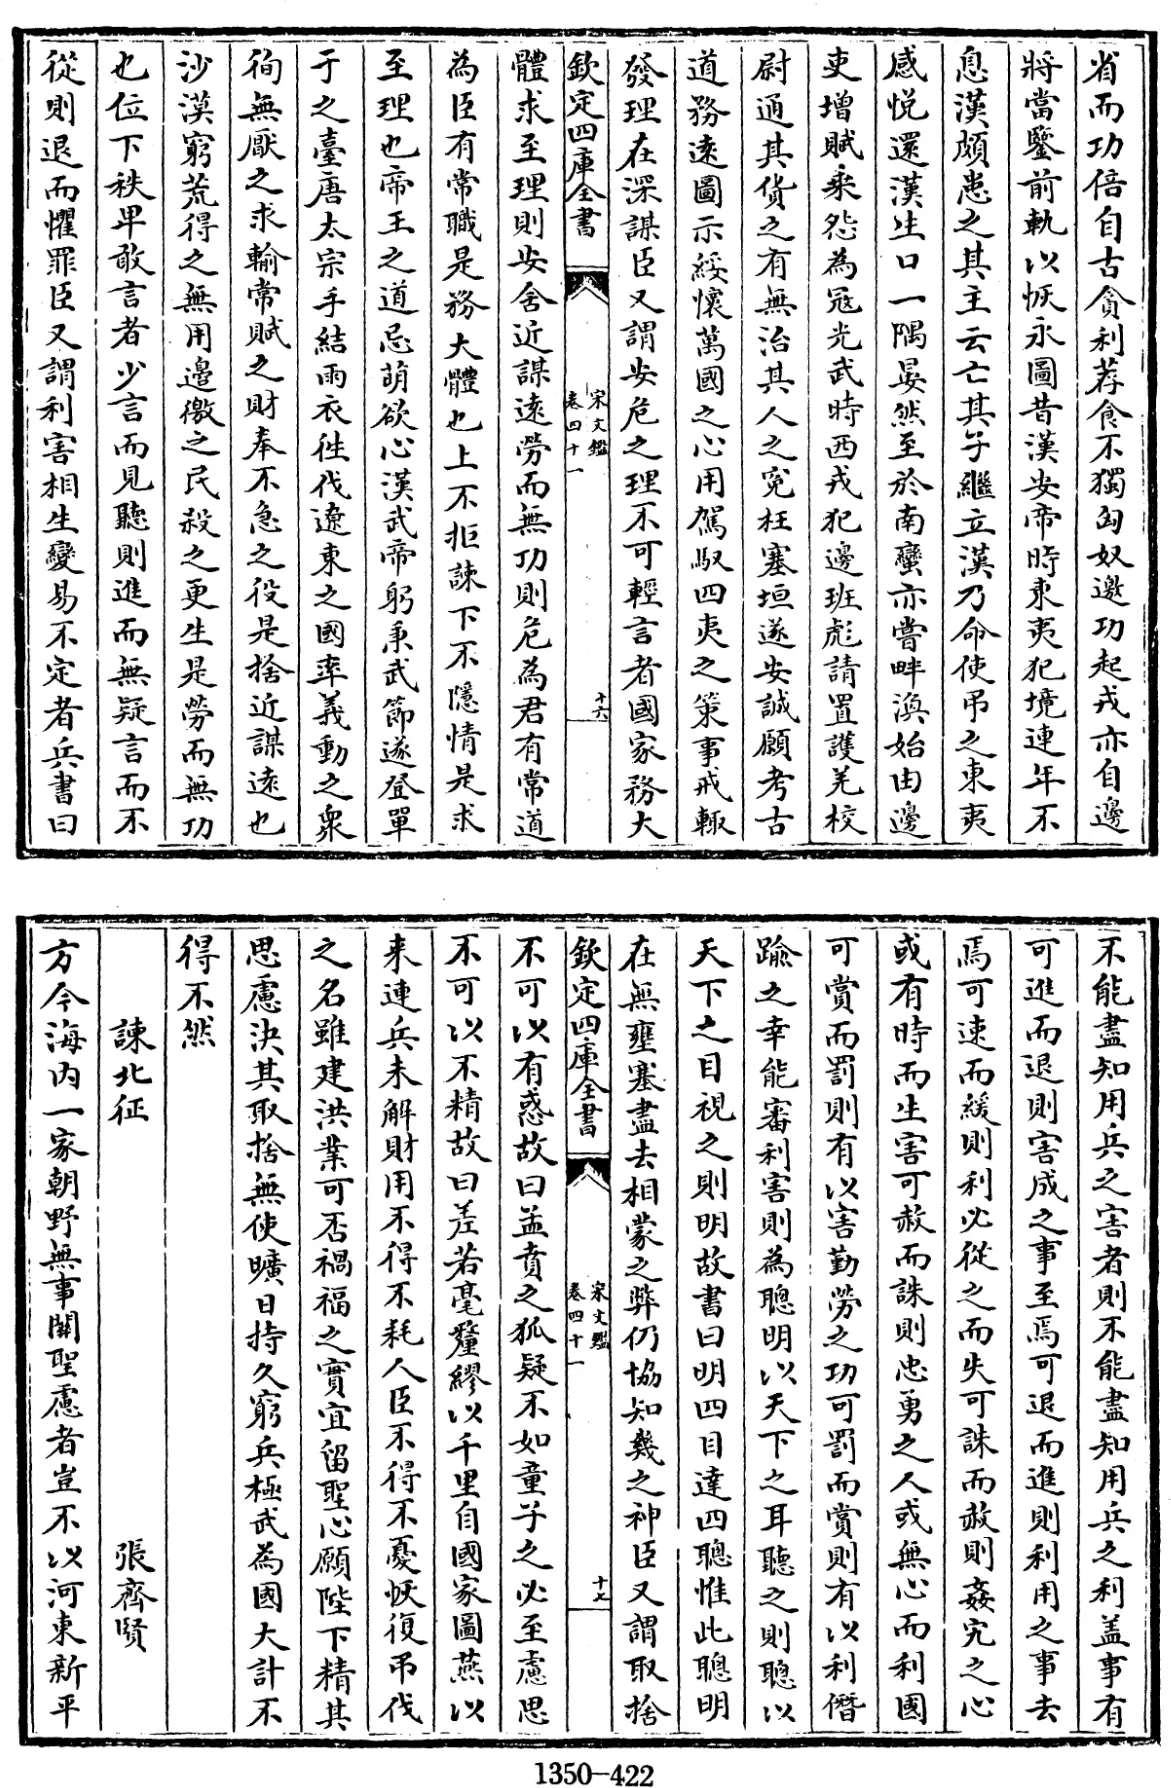 省而功倍自古貪利荐食不獨匈奴邀功起戎亦自邊
將當鑒前軌以恢永圖昔漢安帝時東夷犯境連年不
息漢頗患之其主云亡其子繼立漢乃命使弔之東夷
感悦還漢生口一隅晏然至於南蠻亦嘗畔渙始由邊
吏增賦乘怨為冦光武時西戎犯邊班彪請置護羌校
尉通其貨之有無治其人之寃枉塞垣遂安誠願考古
道務逺圖示綏懷萬國之心用駕馭四夷之策事戒輙
發理在深謀臣又謂安危之理不可輕言者國家務大
欽定四庫全書
宋文鑑
卷四十一
十六
體求至理則安舍近謀逺勞而無功則危為君有常道
為臣有常職是務大體也上不拒諫下不隱情是求
至理也帝王之道忌萌欲心漢武帝躬秉武節遂登單
于之臺唐太宗手結雨衣徃伐遼東之國率義動之衆
徇無厭之求輸常賦之財奉不急之役是捨近謀逺也
沙漠窮荒得之無用邊徼之民殺之更生是勞而無功
也位下秩卑敢言者少言而見聽則進而無疑言而不
從則退而懼罪臣又謂利害相生變易不定者兵書曰
不能盡知用兵之害者則不能盡知用兵之利盖事有
可進而退則害成之事至焉可退而進則利用之事去
焉可速而緩則利必從之而失可誅而赦則姦宄之心
或有時而生害可赦而誅則忠勇之人或無心而利國
可賞而罰則有以害勤勞之功可罰而賞則有以利僭
踰之幸能審利害則為聰明以天下之耳聽之則聰以
天下之目視之則明故書曰明四目達四聰惟此聰明
在無壅塞盡去相蒙之弊仍協知幾之神臣又謂取捨
欽定四庫全書
宋文鑑
卷四十一
十七
不可以有惑故曰孟賁之狐疑不如童子之必至慮思
不可以不精故曰差若毫釐繆以千里自國家圖燕以
来連兵未解財用不得不耗人臣不得不憂恢復弔伐
之名雖建洪業可否禍福之實宜留聖心願陛下精其
思慮決其取捨無使曠日持久窮兵極武為國大計不
得不然
諫北征 張齊賢
方今海内一家朝野無事關聖慮者豈不以河東新平
1350-422